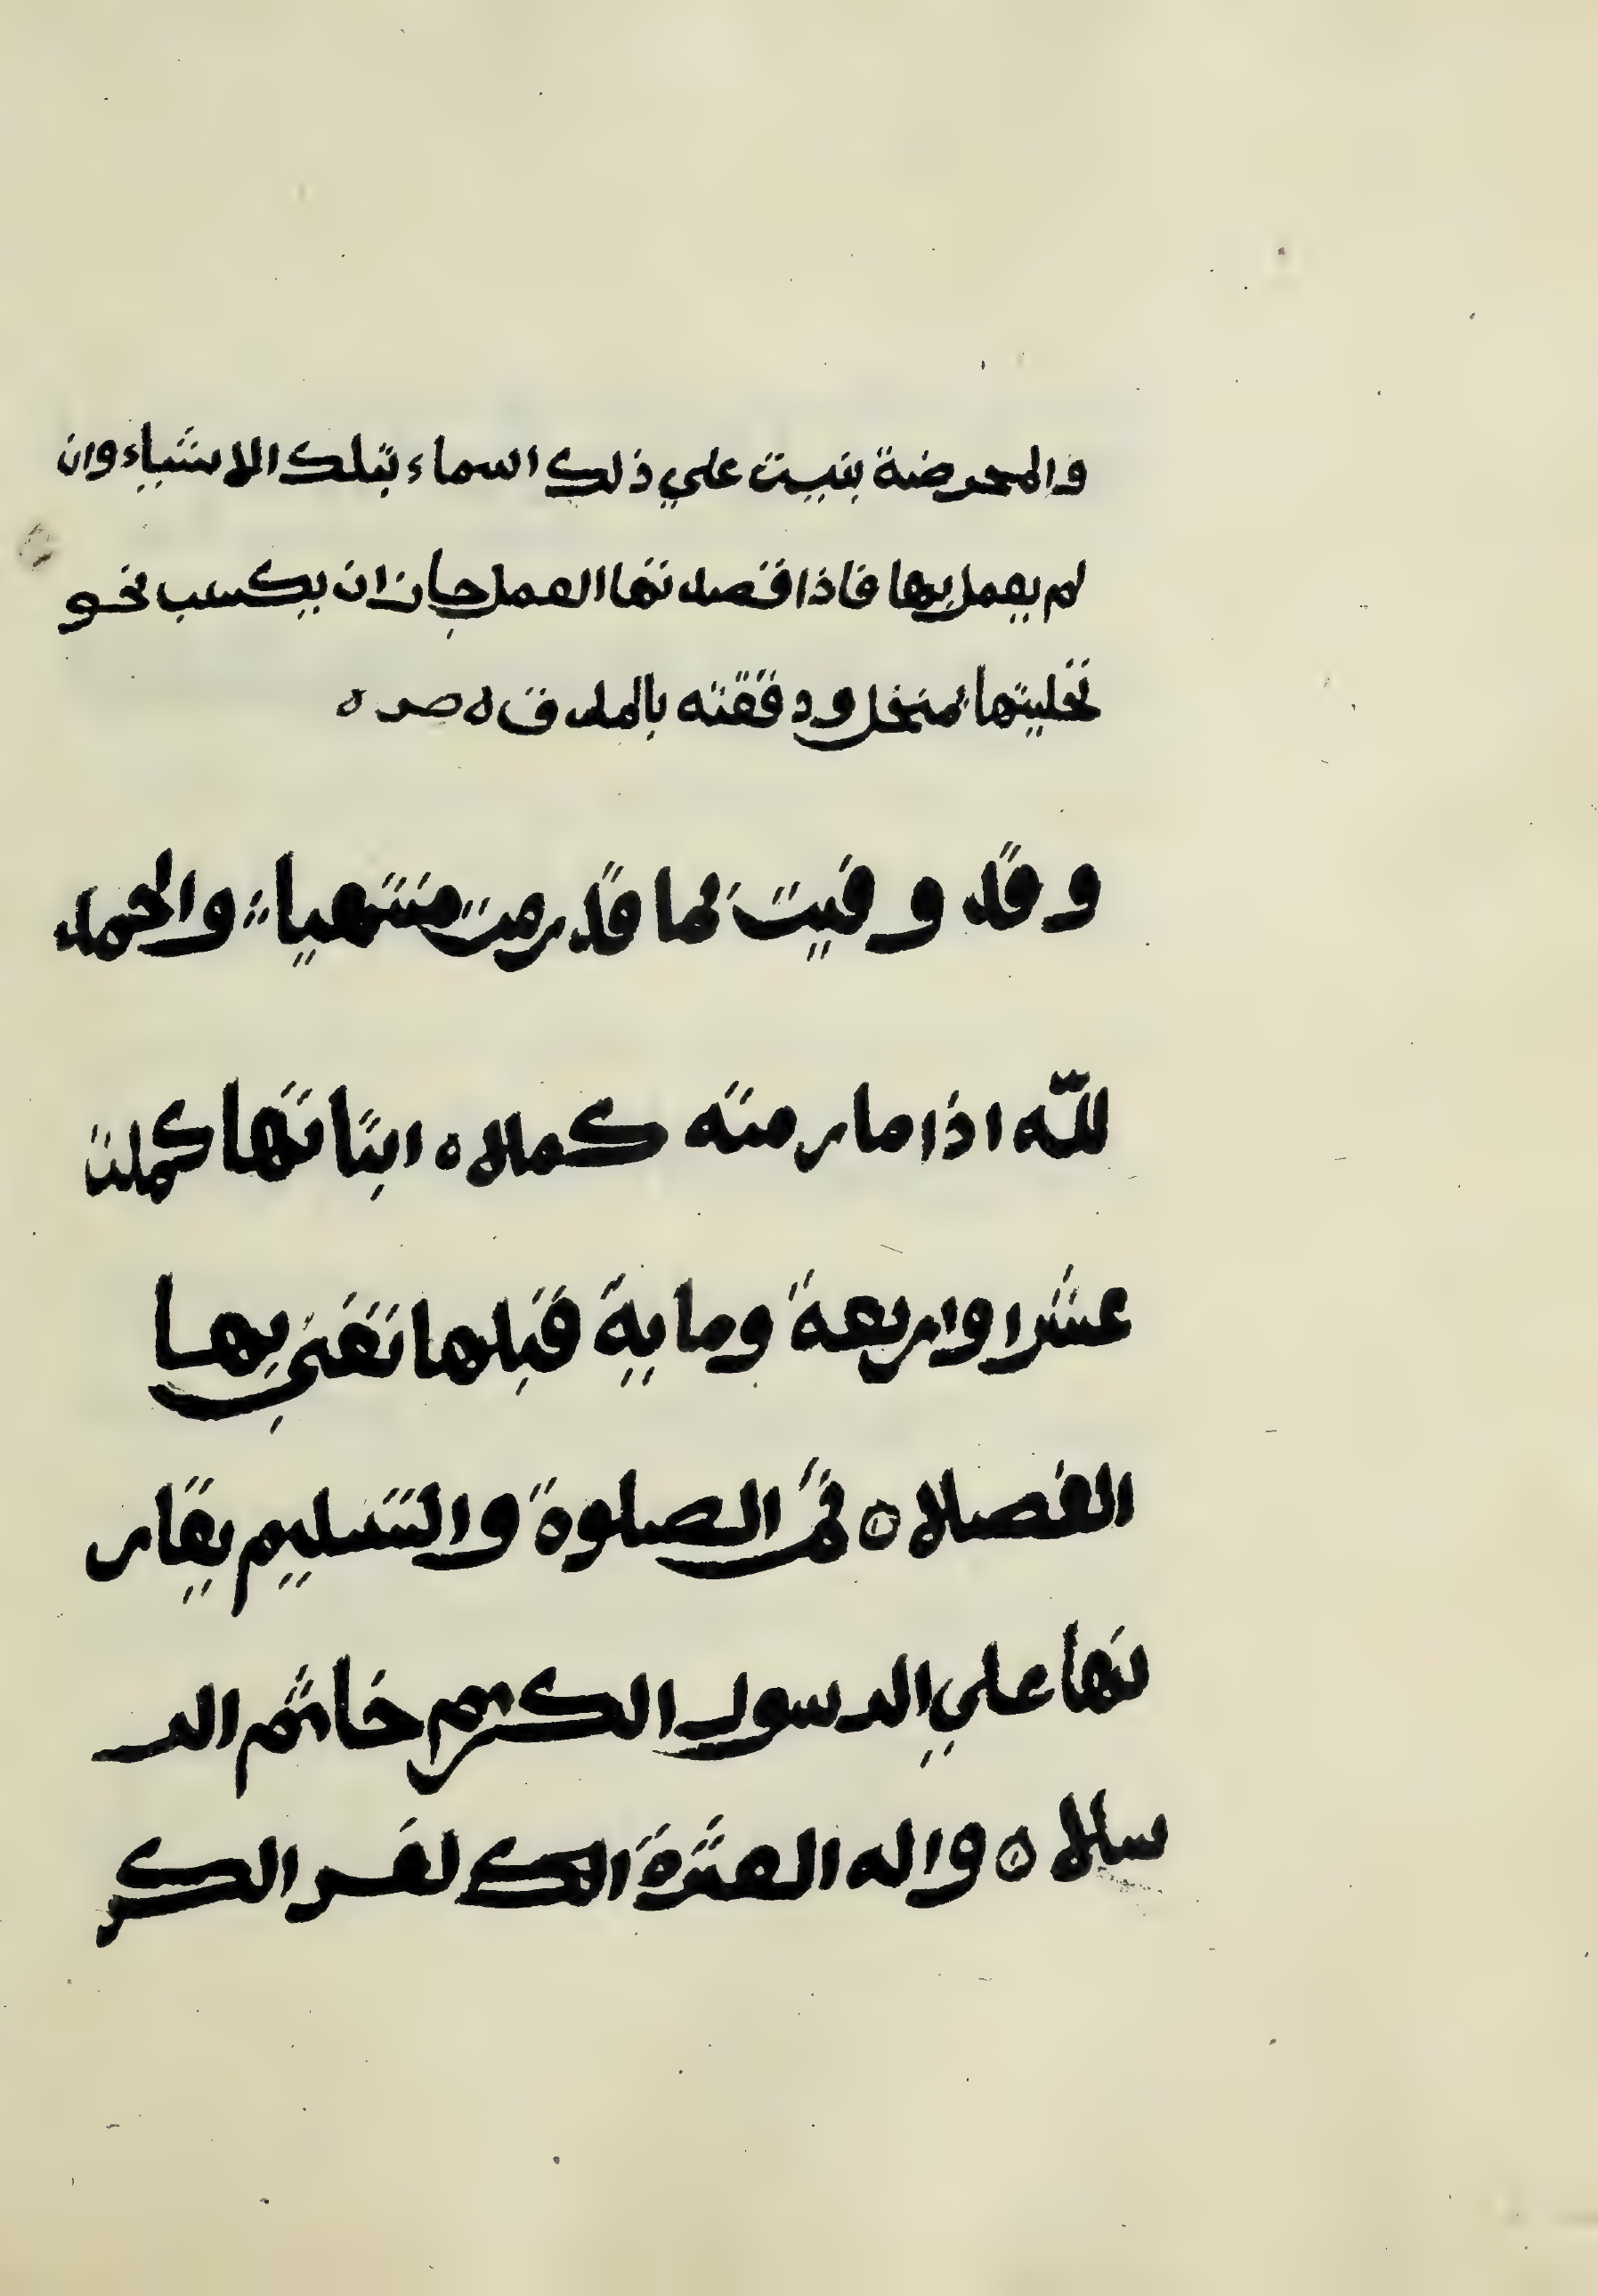 والمحرضة بنيت علي ذلك اسماء لتلك الاشياء وان
لم يعمل بها فاذا قصد نها العمل جاز ان يكسب نحو
نخليتها بمنخل ودققته بالمدق ه صر ه
وقد وفيت لما قد رمت منتهيا والحمد
لله اذا ما رمته كملا ه ابياتها كملت
عشرا واربعة وماية قبلها تغني بها
الفضلا ه ثم الصلوة والتسليم يقار
نها علي الرسول الكريم خاتم الر
سلا ه واله العترة لغر الكر